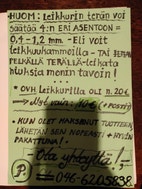 HUOM: Leikkurin terän voi
säätää 4:n ERI ASENTOON =
0,4 - 1,2 mm. - Eli voit
leikkuuhammoilla - TAI
PELKÄLLÄ TERÄLLÄ - leikata
hiuksia monin tavoin!
OVH. Leikkurilla oli n. 20€
→ Nyt vain: 10€ (+ POSTI)
KUN OLET MAKSANUT TUOTTEEN,
LÄHETÄN SEN NOPEASTI + HYVIN
PAKATTUNA!
Ota yhteyttä!
P. 046-6205838